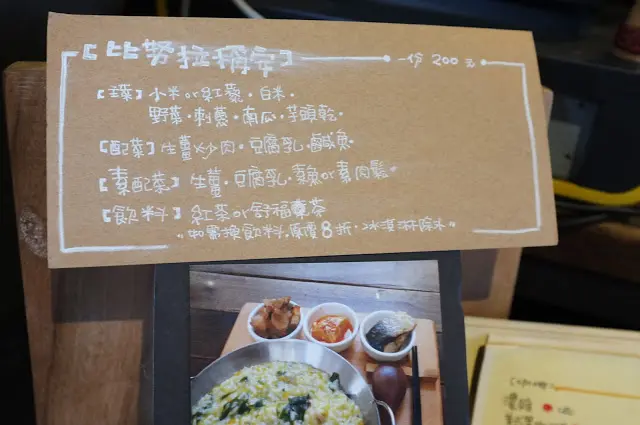 [比努拉稱亭] 一份 200元
[主菜] 小米or紅藜・白米・
野菜・刺蔥・南瓜・芋頭乾。
[配菜] 生薑炒肉・豆腐乳・鹹魚。
[素配菜] 生薑・豆腐乳・素魚or素肉鬆。
[飲料] 紅茶or舒福東茶
"如需換飲料,原價8折・冰淇淋除外"
[咖啡]
濃縮